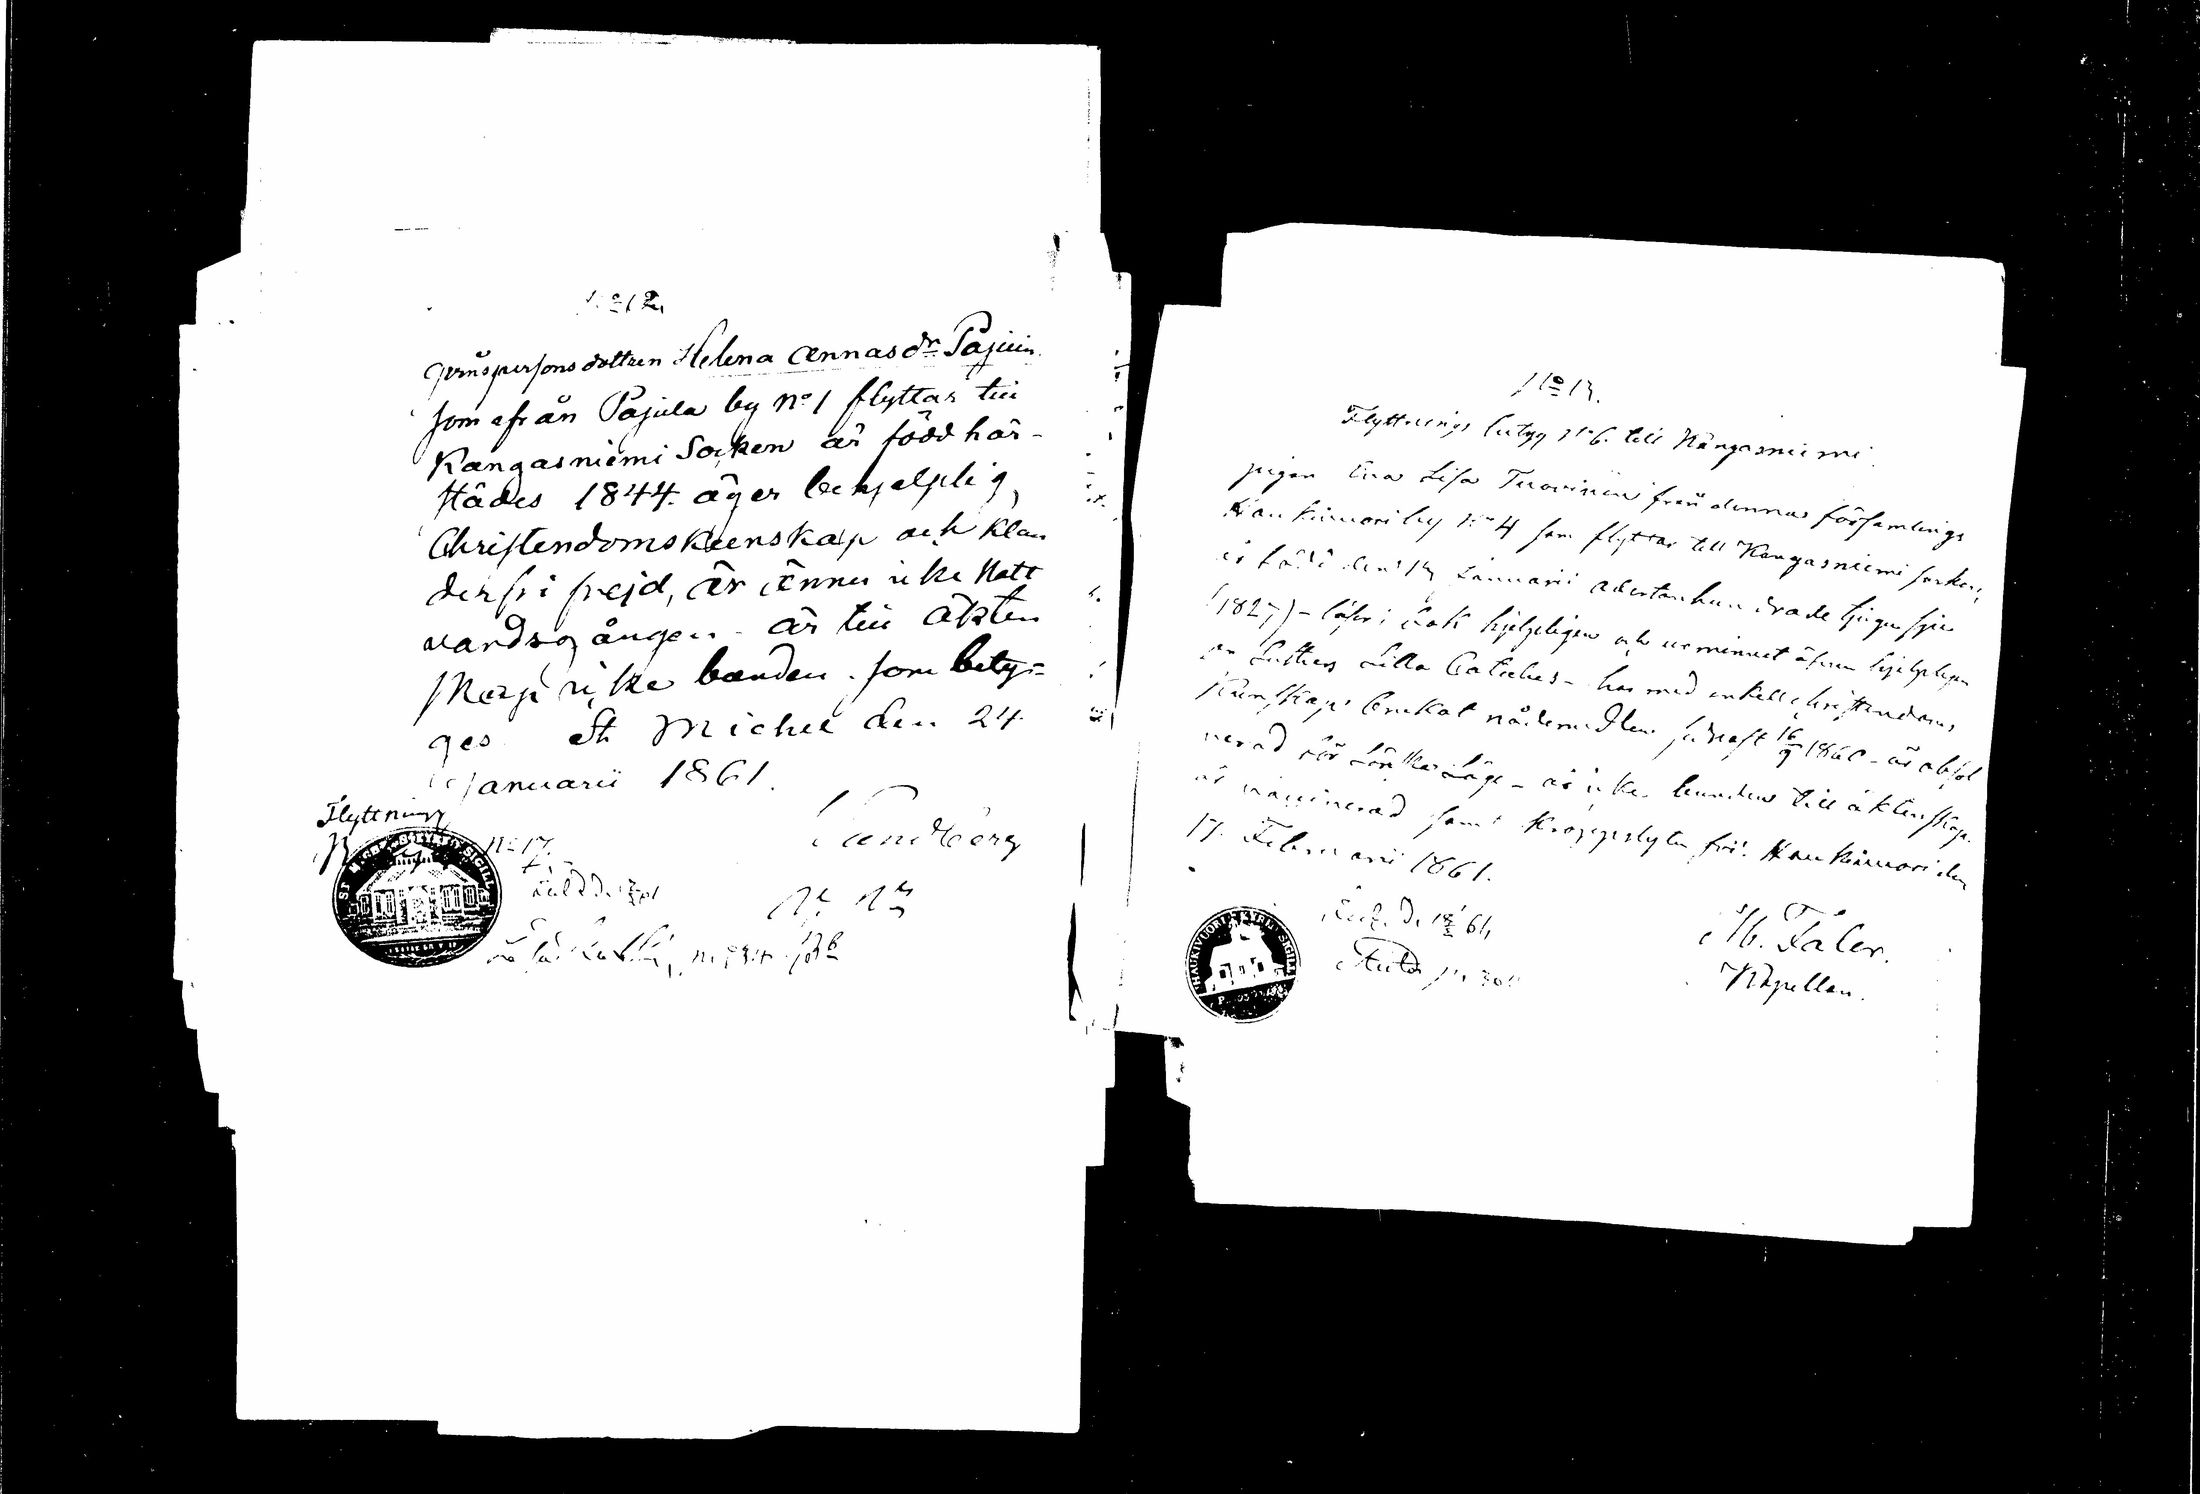 No 12.
qvinspersons dottren Helena Annasdr Pajuin
som från Pajula by No 1 flyttar till
Kangasniemi Socken är född här-
städes 1844. äger behjelplig
Christendomskunskap och klan
derfri frejd, är ännu icke Natt
vardsgången - är till äkten
skap icke bunden. som bety=
ges St Michel den 24
Januarii 1861.
Flyttning
No 17.
ST
SIGILL
No 13.
Flyttnings betyg No 6. till Kangasniemi
pigan Eva Lisa Tuovinen från denna församlings
Haukivuori by No 4 som flyttar till Kangasniemi socken,
är född den Januarii adertonhundrade tjugusju
(1827) - läser i bok hjelpligen och ur minnet äfven hjelpligen
Luthers Lilla Cateches - har med enkell christendoms
kunskap brukat nådemedlen sednast 16/9 1860 - är absol
verad för - är icke bunden till äktenskap.
är vaccinerad samt kroppslyten fri. Haukivuori den
17 Februarii 1861.
HAUKIVUORI KYRKO SIGILL
Taler.
Kapellan.